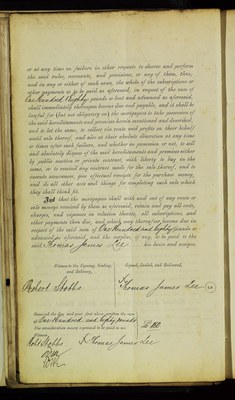 or at any time on failure in other respects to observe and perform
the said rules, covenants, and provisions, or any of them, then,
and in any or either of such cases, the whole of the subscriptions or
other payments so to be paid as aforesaid, in respect of the sum of
One Hundred & Eighty pounds so lent and advanced as aforesaid,
shall immediately thereupon become due and payable, and it shall be
lawful for (but not obligatory on) the mortgagees to take possession of
the said hereditaments and premises herein mentioned and described,
and to let the same, to collect the rents and profits on their behalf
until sale thereof, and also at their absolute discretion at any time
or times after such failure, and whether in possession or not, to sell
and absolutely dispose of the said hereditaments and premises either
by public auction or private contract, with liberty to buy in the
same, or to rescind any contract made for the sale thereof, and to
execute assurances, give effectual receipts for the purchase money,
and do all other acts and things for completing such sale which
they shall think fit.
And that the mortgagees shall with and out of any rents or
sale moneys received by them as aforesaid, retain and pay all costs,
charges, and expenses in relation thereto, all subscriptions and
other payments then due, and which may thereafter become due in
respect of the said sum of One Hundred and Eighty pounds so
advanced as aforesaid, and the surplus, if any, to be paid to the
said Thomas James Lee his heirs and assigns.
Witness to the Signing, Sealing, and Delivery,
Signed, Sealed, and Delivered,
Robert Stobbs
Thomas James Lee
Received the day and year first above written the sum
of One Hundred and Eighty pounds
the consideration money expressed to be paid to me.
£ 180
Witness
Robt Stobbs
Thomas James Lee